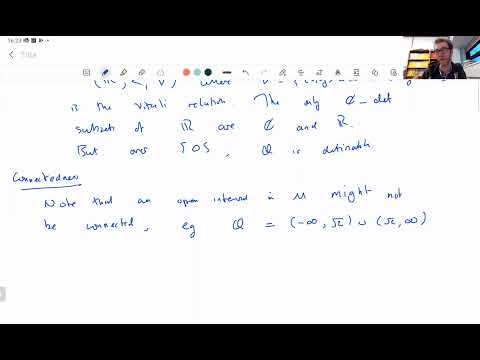 16:23
Title
is the vitali relation. The only ∅-def
subsets of ℝ are ∅ and ℝ.
But over {0}, ℚ is definable
Connectedness
Note that an open interval in M might not
be connected, eg ℚ = (-∞, √2) ∪ (√2, ∞)